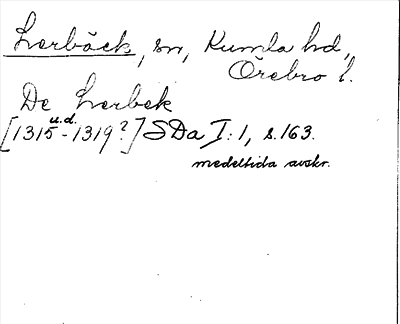 Lerbäck, sn, Kumla hd,
Örebro l.
De Lerbek
u.d.
[1315-1319?] SDa I:1, s.163.
medeltida avskr.